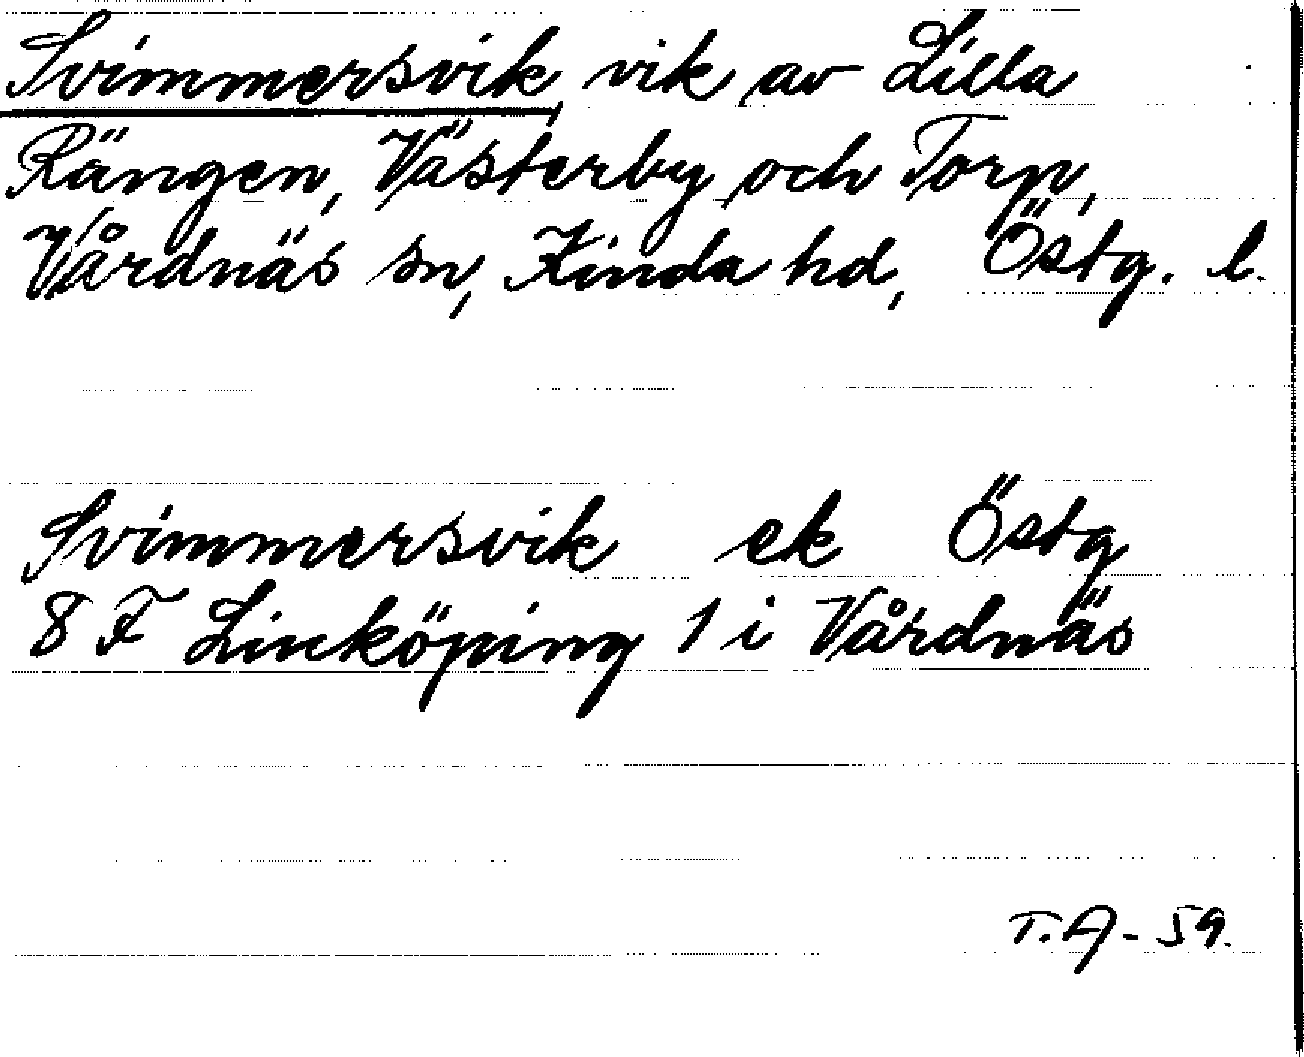 Svimmersvik, vik av Lilla
Rängen, Västerby och Torp,
Vårdnäs sn, Kinda hd, Östg. l.
Svimmersvik ek Östg
8 F Linköping 1 i Vårdnäs
T.A-59.